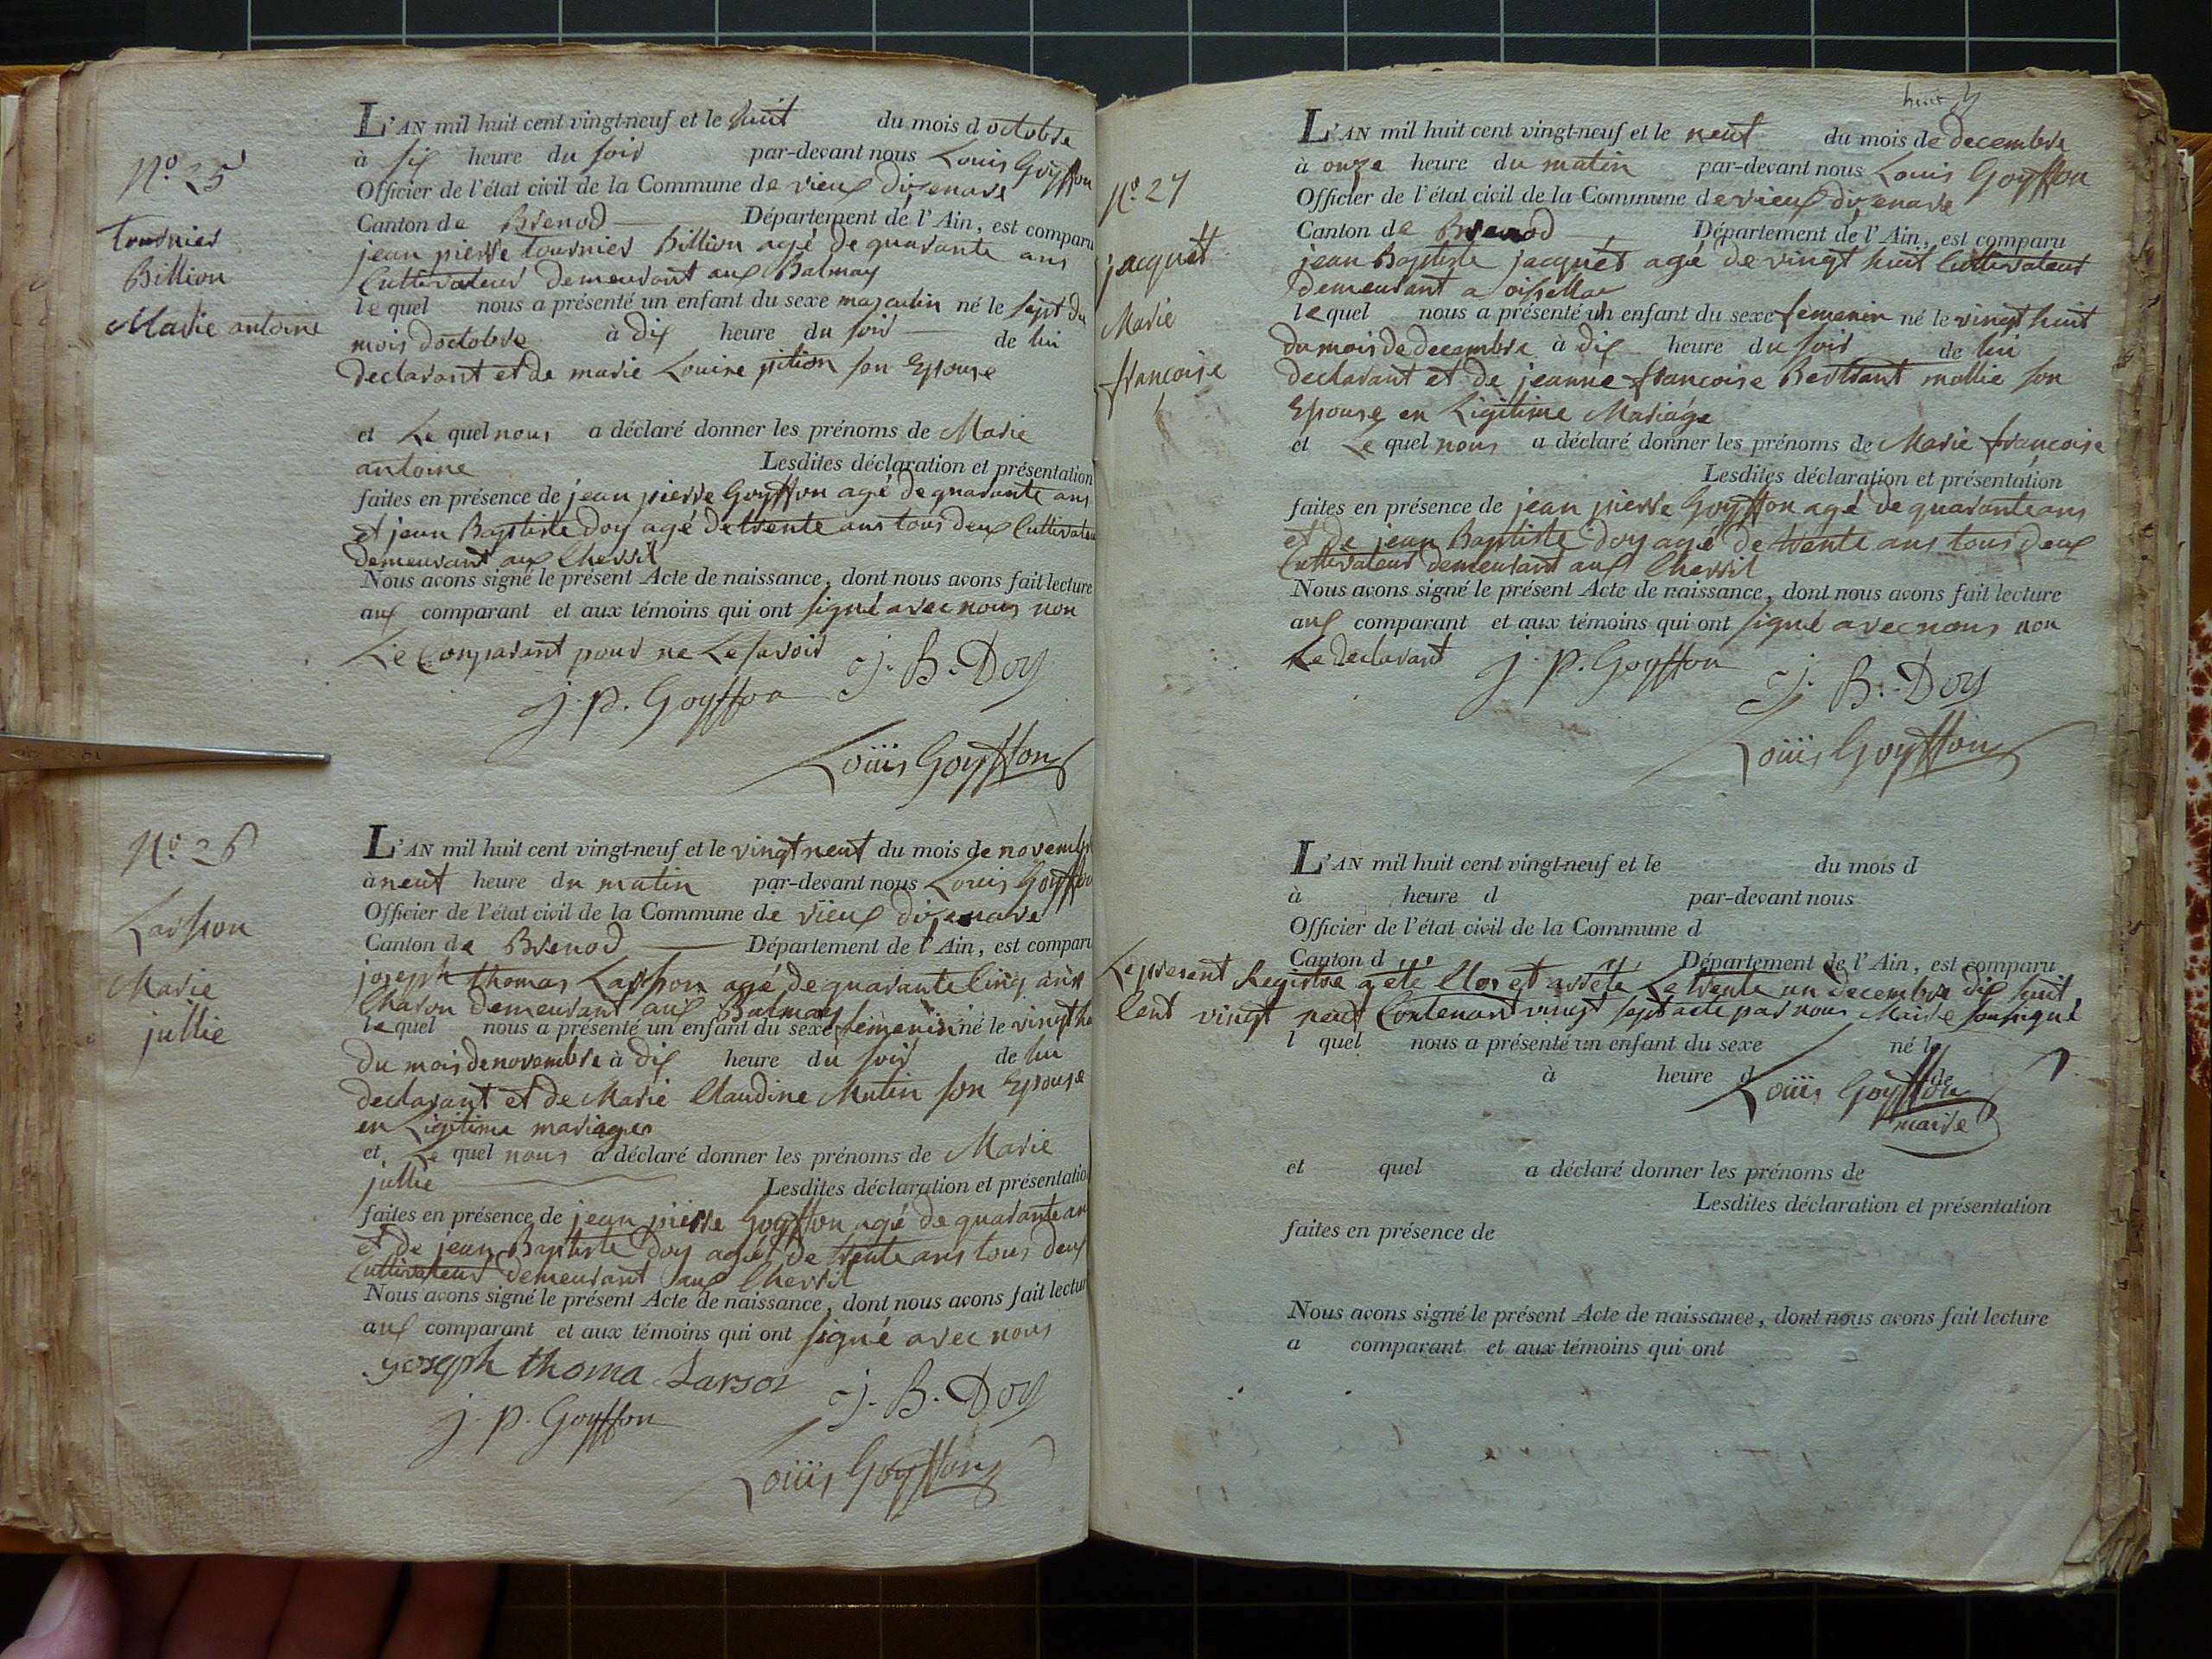 N.o 25
tournier
Billion
Marie antoine
L'AN mil huit cent vingt-neuf et le huit du mois d octobre
à six heure du soir par-devant nous Louis Goyffon
Officier de l'état civil de la Commune de vieux dizenave
Canton de Brenod Département de l'Ain, est comparu
jean pierre tournier Billion agé de quarante ans
Cultivateur demeurant aux Balmay
le quel nous a présenté un enfant du sexe masculin né le sept du
mois doctobre à dix heure du soir de lui
declarant et de marie Louise pition son Epouse
et Le quel nous a déclaré donner les prénoms de Marie
antoine Lesdites déclaration et présentation
faites en présence de jean pierre Goyffon agé de quarante ans
et jean Baptiste Doy agé de trente ans tous deux Cultivateur
demeurant aux Chevril
Nous avons signé le présent Acte de naissance, dont nous avons fait lecture
aux comparant et aux témoins qui ont signé avec nous non
Le Comparant pour ne Le savoir
J. B. Doy
j. p. Goyffon
Loüis Goyffon
N.o 26
Larson
Marie
jullie
L'AN mil huit cent vingt-neuf et le vingt neuf du mois de novembre
à neuf heure du matin par-devant nous Louis Goyffon
Officier de l'état civil de la Commune de vieux dizenave
Canton de Brenod Département de l'Ain, est comparu
joseph thomas Larson agé de quarante Cinq ans
Charon demeurant aux Balmay
le quel nous a présenté un enfant du sexe femenin né le vingt
du mois de novembre à dix heure du soir de lui
declarant et de Marie Claudine Mutin son Epouse
en Ligitime mariage
et Le quel nous a déclaré donner les prénoms de Marie
jullie Lesdites déclaration et présentation
faites en présence de jean pierre Goyffon agé de quarante an
et de jean Baptiste Doy agé de trente ans tous deux
Cultivateur demeurant aux Chevril
Nous avons signé le présent Acte de naissance, dont nous avons fait lecture
aux comparant et aux témoins qui ont signé avec nous
joseph thoma Larson
J. B. Doy
j. p. Goyffon
Loüis Goyffon
huit
N.o 27
jacquet
Marie
francoise
L'AN mil huit cent vingt-neuf et le neuf du mois de decembre
à onze heure du matin par-devant nous Louis Goyffon
Officier de l'état civil de la Commune de vieux dizenave
Canton de Brenod Département de l'Ain, est comparu
jean Baptiste jacquet agé de vingt huit Cultivateur
demeurant a oissellaz
le quel nous a présenté un enfant du sexe femenin né le vingt huit
du mois de decembre à dix heure du soir de lui
declarant et de jeanne francoise Bertrant mollie son
Epouse en Ligitime Mariage
et Le quel nous a déclaré donner les prénoms de Marie francoise
Lesdites déclaration et présentation
faites en présence de jean pierre Goyffon agé de quarante ans
et de jean Baptiste Doy agé de trente ans tous deux
Cultivateur demeurant aux Chevril
Nous avons signé le présent Acte de naissance, dont nous avons fait lecture
aux comparant et aux témoins qui ont signé avec nous non
Le declarant
j. p. Goyffon
J. B. Doy
Loüis Goyffon
L'AN mil huit cent vingt-neuf et le du mois d
à heure d par-devant nous
Officier de l'état civil de la Commune d
Canton d Département de l'Ain, est comparu
Le present Registre a été Clos et arrêté Le trente un decembre dix huit
Cent vingt neuf Contenant vingt sept acte par nous Maire soussigné
l quel nous a présenté un enfant du sexe né l
à heure d de
Loüis Goyffon
maire
et quel a déclaré donner les prénoms de
Lesdites déclaration et présentation
faites en présence de
Nous avons signé le présent Acte de naissance, dont nous avons fait lecture
a comparant et aux témoins qui ont